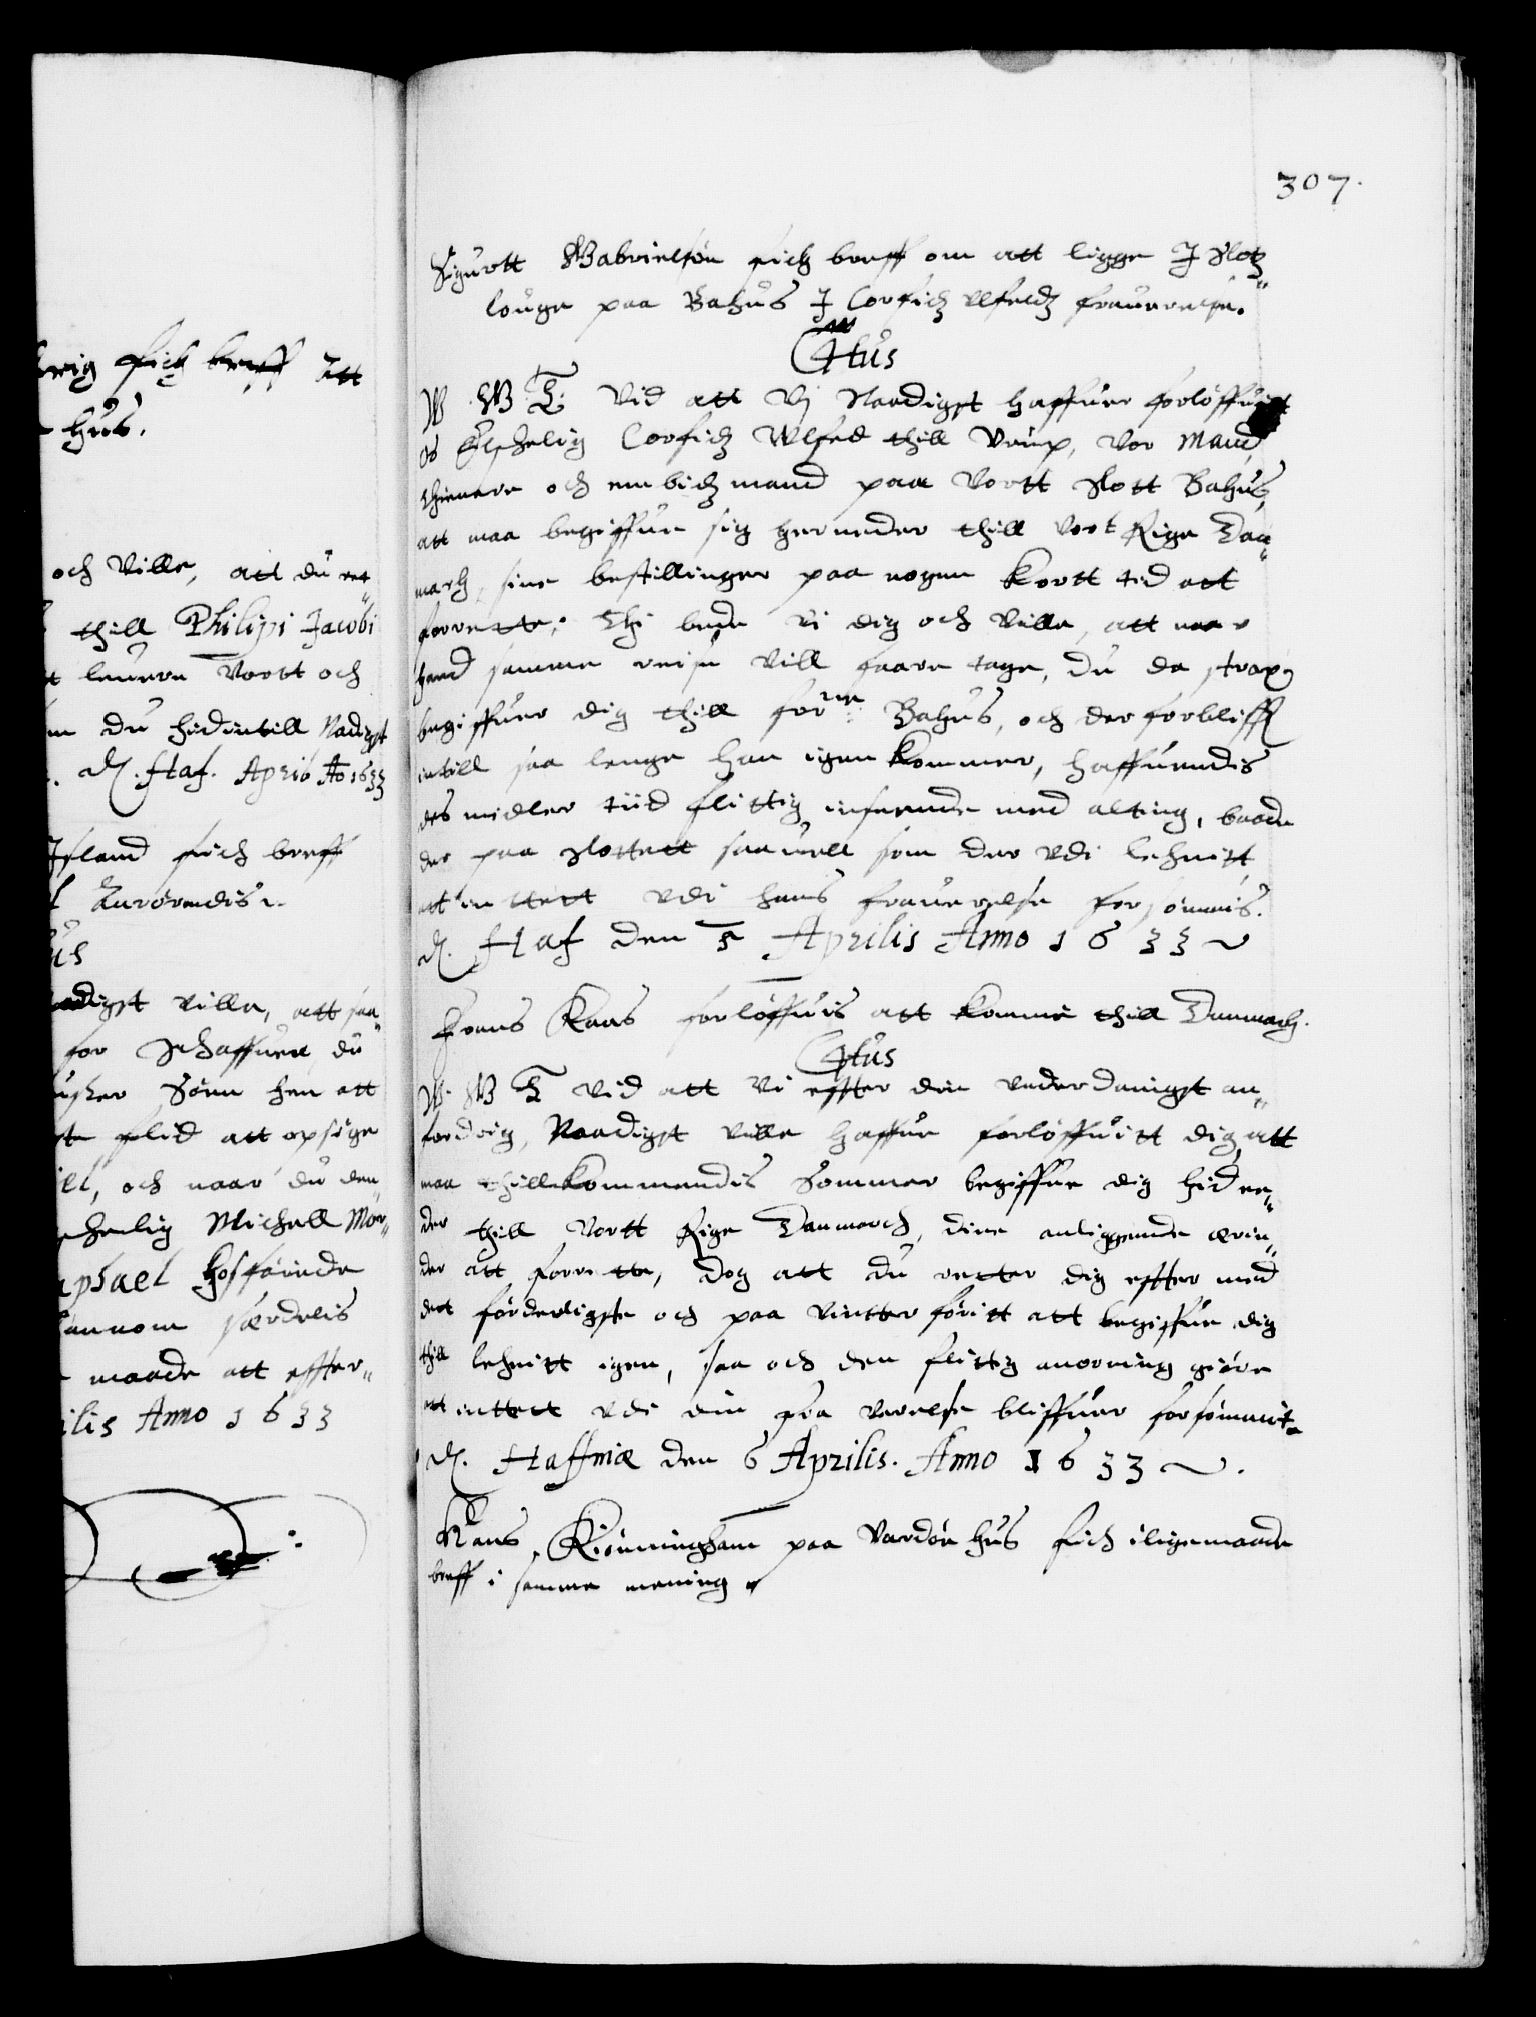 307.
Sigurtt Gabrielsøn fich breff om att ligge J Slotz„
louge paa Bahus J Corfidz Ulfeldz frauerelse.
C4tus
W G T. Vid att Vj Naadigst haffuer forløffuitt
os Elschelig Corfidz Wlfed thill Vrup, Vor Mand
thienere och embidzmand paa Vortt Slott Bahus,
att maa begiffue sig herneder thill Vort Rige Dan„
march, sine bestillinger paa nogen kortt tid att
forrette; Thi bede vi dig och Ville, att naar
hand samme reise Vill faare tage, du da strax
begiffuer dig thill forne Bahus, och der forbliffr
intill saa lenge han igen kommer, haffuendis
des midler tiid flittig inseende med alting, baade
der paa Slottett saauell som der vdi lehnitt
att inttett vdi hans frauerelse forsømmis.
d. Haf den 5 Aprilis Anno 1633
Frans Kaas forløffuis att komme thill Danmarch.
C4tus
W. G T Vid att Vi effter din vnderdanigst an„
fordring, Naadigst Ville haffue forløffuitt dig, att
maa thillkommendis Sommer begiffue dig hid ne„
der thill Vortt Rige Danmarch, dine anliggende ærin„
der att forrette, dog att du retter dig effter med
dett forderligste och paa Vintter føritt att begiffue dig
thill lehnitt igen, saa och den flittig anording giøre
att inttett vdi din fra verelse bliffuer forsømmit
d. Haffniæ den 6 Aprilis. Anno 1633
Hans Kiønningham paa Vardøe hus fich iligemaade
breff i samme mening
erig fich breff Att
hus.
och Ville, att du ret„
thill Philipi Jacobi
leuere Vortt och
du hidintill Nadigst
d. Haf. Apris Ao 1633
Jsland fich breff
Anrørendis
us
naadigst Ville, att saa„
for schaffuer du
Sønn hen att
flid att opsige
och naar du den„
schelig Michell Mor„
aphael hoffarinde
særdelis
maade att effter„
ilis Anno 1633